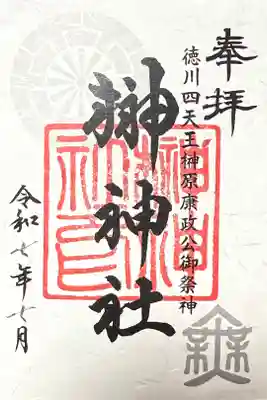 奉拝
徳川四天王榊原康政公御祭神
榊神社
令和七年七月